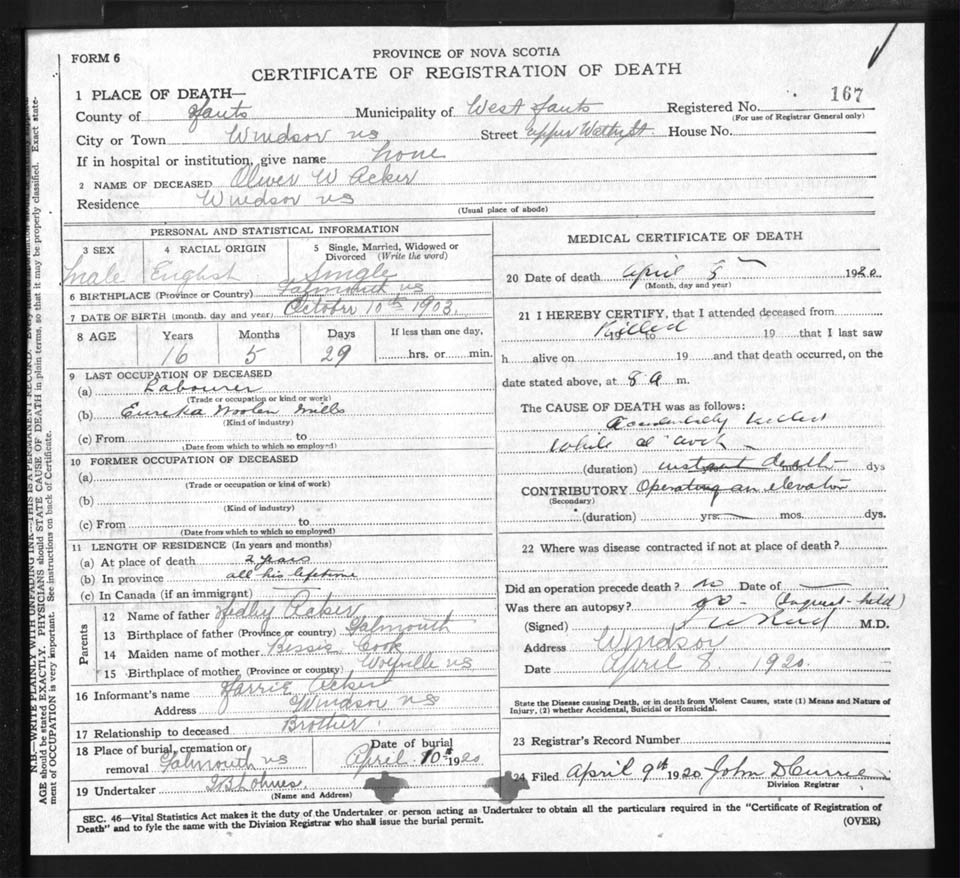 FORM 6
PROVINCE OF NOVA SCOTIA
CERTIFICATE OF REGISTRATION OF DEATH
1 PLACE OF DEATH—
County of Hants Municipality of West Hants Registered No. 167
(For use of Registrar General only)
City or Town Windsor NS Street Upper Water St. House No.
If in hospital or institution, give name none
2 NAME OF DECEASED Oliver W Acker
Residence Windsor NS
(Usual place of abode)
PERSONAL AND STATISTICAL INFORMATION
3 SEX 4 RACIAL ORIGIN 5 Single, Married, Widowed or Divorced (Write the word)
male English Single
6 BIRTHPLACE (Province or Country) Falmouth NS
7 DATE OF BIRTH (month, day and year) October 10th 1903.
8 AGE Years Months Days If less than one day,
16 5 29 hrs. or min.
9 LAST OCCUPATION OF DECEASED
(a) Labourer
(Trade or occupation or kind or work)
(b) Eureka Woolen Mills
(Kind of industry)
(c) From to
(Date from which to which so employed)
10 FORMER OCCUPATION OF DECEASED
(a)
(Trade or occupation or kind of work)
(b)
(Kind of industry)
(c) From to
(Date from which to which so employed)
11 LENGTH OF RESIDENCE (In years and months)
(a) At place of death 2 years
(b) In province all his lifetime
(c) In Canada (if an immigrant)
Parents
12 Name of father Hedley Acker
13 Birthplace of father (Province or country) Falmouth
14 Maiden name of mother Bessie Cook
15 Birthplace of mother (Province or country) Wolfville NS
16 Informant's name Harrie Acker
Address Windsor NS
17 Relationship to deceased Brother
18 Place of burial, cremation or Date of burial
removal Falmouth NS April 10th 1920
19 Undertaker
(Name and Address)
MEDICAL CERTIFICATE OF DEATH
20 Date of death April 1920
(Month, day and year)
21 I HEREBY CERTIFY, that I attended deceased from
Killed 19 to 19 that I last saw
h alive on 19 and that death occurred, on the
date stated above, at 8 a m.
The CAUSE OF DEATH was as follows:
Accidentally killed
while at work
(duration) instant death mos. dys
CONTRIBUTORY Operating an elevator
(Secondary)
(duration) yrs. mos. dys.
22 Where was disease contracted if not at place of death?
Did an operation precede death? no Date of
Was there an autopsy? no (Inquest held)
(Signed) Reid M.D.
Address Windsor
Date April 8. 1920.
State the Disease causing Death, or in death from Violent Causes, state (1) Means and Nature of
Injury, (2) whether Accidental, Suicidal or Homicidal.
23 Registrar's Record Number
24 Filed April 9th 1920 John D Currie
Division Registrar
SEC. 46—Vital Statistics Act makes it the duty of the Undertaker or person acting as Undertaker to obtain all the particulars required in the "Certificate of Registration of
Death" and to fyle the same with the Division Registrar who shall issue the burial permit.
(OVER)
N.B.—WRITE PLAINLY WITH UNFADING INK—THIS IS A PERMANENT RECORD.
AGE should be stated EXACTLY. PHYSICIANS should STATE CAUSE OF DEATH in plain terms, so that it may be properly classified. Exact state-
ment of OCCUPATION is very important. See instructions on back of Certificate.